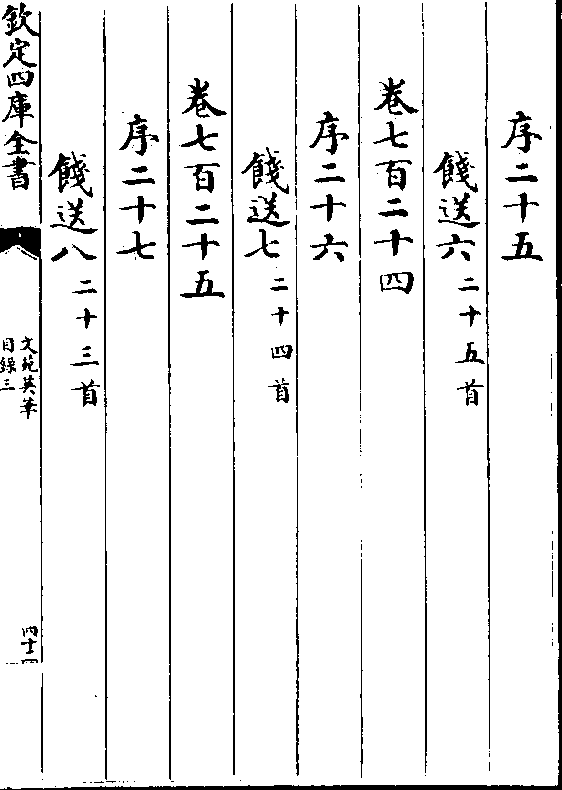 序二十五
餞送六二十五首
卷七百二十四
序二十六
餞送七二十四首
卷七百二十五
序二十七
餞送八二十三首
欽定四庫全書
文苑英華
目録三